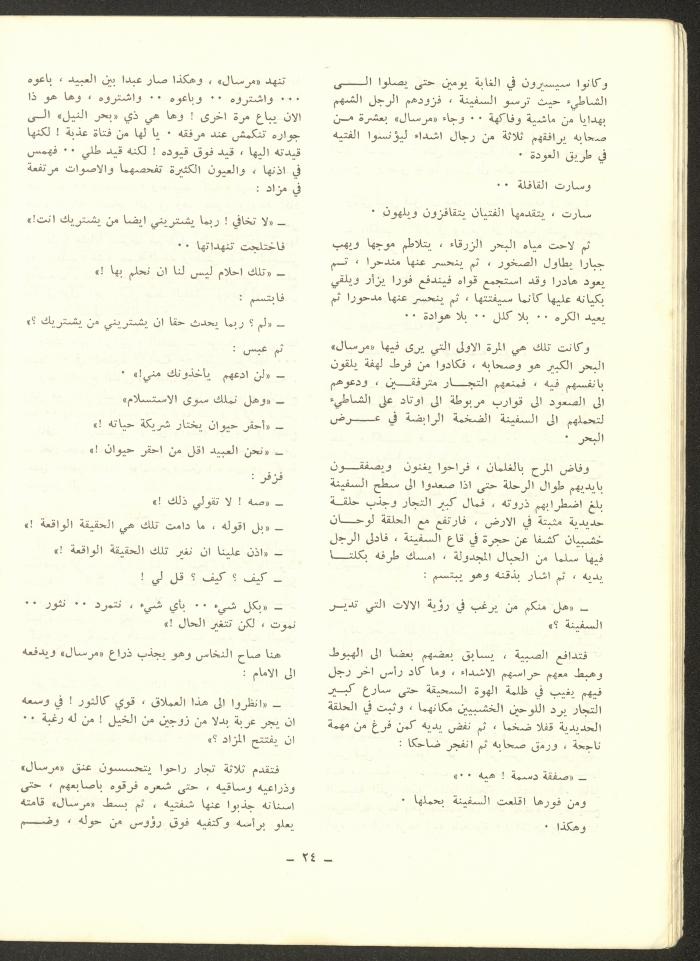 وكانوا سيسيرون في الغابة يومين حتى يصلوا الـــى
الشاطيء حيث ترسو السفينة ، فزودهم الرجل الشهم
بهدايا من ماشية وفاكهة ٠٠ وجاء «مرسال» بعشرة مــن
صحابه يرافقهم ثلاثة من رجال اشداء ليؤنسوا الفتيه
في طريق العودة ٠
وسارت القافلة ٠٠
سارت ، يتقدمها الفتيان يتقافزون ويلهون ٠
ثم لاحت مياه البحر الزرقاء ، يتلاطم موجها ويهب
جبارا يطاول الصخور ، ثم ينحسر عنها مندحرا ، ثــم
يعود هادرا وقد استجمع قواه فيندفع فورا يزأر ويلقي
بكيانه عليها كأنما سيفتتها ، ثم ينحسر عنها مدحورا ثم
يعيد الكره ٠٠ بلا كلل ٠٠ بلا هوادة ٠٠
وكانت تلك هي المرة الاولى التي يرى فيها «مرسال»
البحر الكبير هو وصحابه ، فكادوا من فرط لهفة يلقون
بانفسهم فيه ، فمنعهم التجــار مترفقــين ، ودعوهم
الى الصعود الى قوارب مربوطة الى اوتاد على الشاطيء
لتحملهم الى السفينة الضخمة الرابضة في عــــرض
البحر ٠
وفاض المرح بالغلمان ، فراحوا يغنون ويصفقــون
بايديهم طوال الرحلة حتى اذا صعدوا الى سطح السفينة
بلغ اضطرابهم ذروته ، فمال كبير التجار وجذب حلقــة
حديدية مثبتة في الارض ، فارتفع مع الحلقة لوحــان
خشبيان كشفا عن حجرة في قاع السفينة ، فادلى الرجل
فيها سلما من الحبال المجدولة ، امسك طرفه بكلتــا
يديه ، ثم اشار بذقنه وهو يبتسم :
ــ «هل منكم من يرغب في رؤية الالات التي تديــر
السفينة ؟»
فتدافع الصبية ، يسابق بعضهم بعضا الى الهبوط
وهبط معهم حراسهم الاشداء ، وما كاد رأس اخر رجل
فيهم يغيب في ظلمة الهوة السحيقة حتى سارع كبــير
التجار يرد اللوحين الخشبيين مكانهما ، وثبت في الحلقة
الحديدية قفلا ضخما ، ثم نفض يديه كمن فرغ من مهمة
ناجحة ، ورمق صحابه ثم انفجر ضاحكا :
ــ «صفقة دسمة ! هيه ٠٠»
ومن فورها اقلعت السفينة بحملها ٠
وهكذا ٠
تنهد «مرسال» ، وهكذا صار عبدا بين العبيد ، باعوه
٠٠٠ واشتروه ٠٠ وباعوه ٠٠ واشتروه ، وها هو ذا
الان يباع مرة اخرى ! وها هي ذي «بحر النيل» الــى
جواره تنكمش عند مرفقه ٠ يا لها من فتاة عذبة ! لكنها
قيدته اليها ، قيد فوق قيوده ! لكنه قيد طلي ٠٠ فهمس
في اذنها ، والعيون الكثيرة تفحصهما والاصوات مرتفعة
في مزاد :
ــ «لا تخافي ! ربما يشتريني ايضا من يشتريك انت!»
فاختلجت تنهداتها ٠٠
ــ «تلك احلام ليس لنا ان نحلم بها !»
فابتسم :
ــ «لم ؟ ربما يحدث حقا ان يشتريني من يشتريك ؟»
ثم عبس :
ــ «لن ادعهم يأخذونك مني!» ٠
ــ «وهل نملك سوى الاستسلام»
ــ «أحقر حيوان يختار شريكة حياته !»
ــ «نحن العبيد اقل من احقر حيوان !»
فزفر :
ــ «صه ! لا تقولي ذلك !»
ــ «بل اقوله ، ما دامت تلك هي الحقيقة الواقعة !»
ــ «اذن علينا ان نغير تلك الحقيقة الواقعة !»
ــ كيف ؟ كيف ؟ قل لي !
ــ «بكل شيء ٠٠ بأي شيء ، نتمرد ٠٠ نثور ٠٠
نموت ، لكن تتغير الحال !»
هنا صاح النخاس وهو يجذب ذراع «مرسال» ويدفعه
الى الامام :
ــ «انظروا الى هذا العملاق ، قوي كالثور ! في وسعه
ان يجر عربة بدلا من زوجين من الخيل ! من له رغبة ٠٠
ان يفتتح المزاد ؟»
فتقدم ثلاثة تجار راحوا يتحسسون عنق «مرسال»
وذراعيه وساقيه ، حتى شعره فرقوه باصابعهم ، حتى
اسنانه جذبوا عنها شفتيه ، ثم بسط «مرسال» قامته
يعلو برأسه وكتفيه فوق رؤوس من حوله ، وضــم
ــ ٢٤ ــ